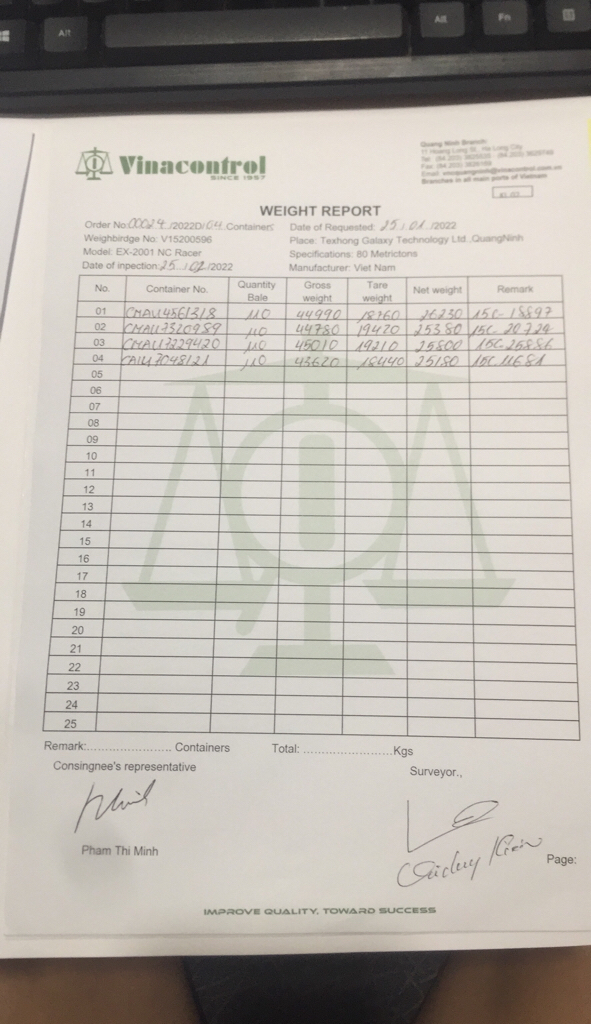 Alt
Alt
Fn
Vinacontrol
SINCE 1957
Quang Ninh Branch
Branches in all main ports of Vietnam
WEIGHT REPORT
Order No: 00024 /2022D/ 04 Containers
Date of Requested: 25 / 01 /2022
Weighbirdge No: V15200596
Place: Texhong Galaxy Technology Ltd.,QuangNinh
Model: EX-2001 NC Racer
Specifications: 80 Metrictons
Date of inpection: 25 / 02 /2022
Manufacturer: Viet Nam
No. Container No. Quantity Bale Gross weight Tare weight Net weight Remark
01 CMAU4561318 110 44990 18760 26230 15C-18897
02 110 44780 19420 25380 15C-20724
03 CMAU7229420 110 45010 19210 25800 15C 25886
04 CAIU7048121 110 43620 18440 25180 15C 11681
05
06
07
08
09
10
11
12
13
14
15
16
17
18
19
20
21
22
23
24
25
Remark:...................... Containers Total: ........................Kgs
Consingnee's representative
Surveyor.,
Pham Thi Minh
Page:
IMPROVE QUALITY, TOWARD SUCCESS